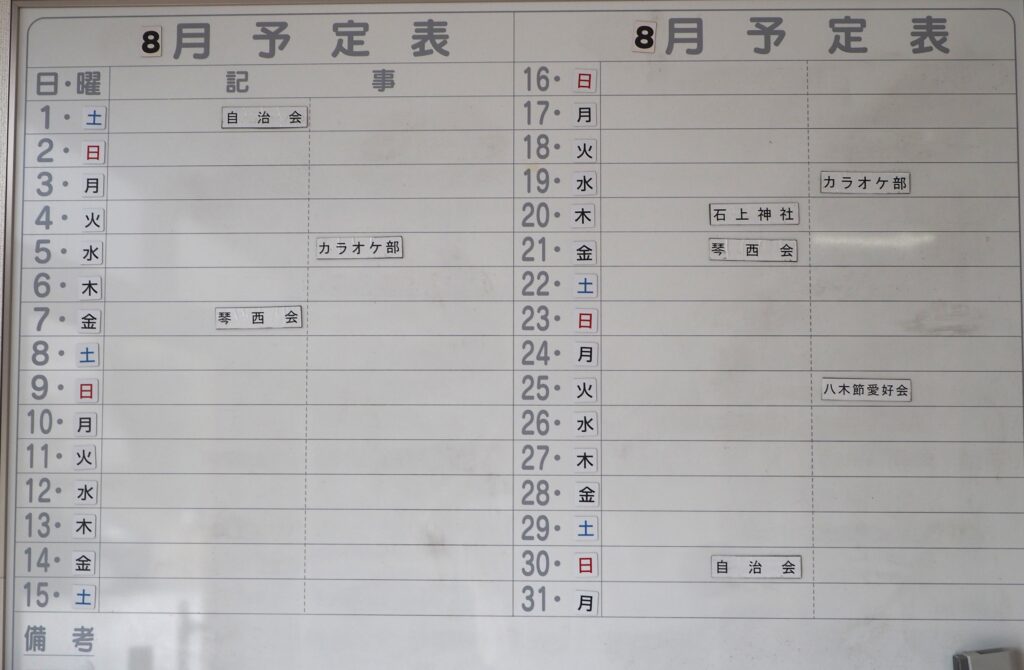 8月予定表
日・曜 記事
1・土 自治会
2・日
3・月
4・火
5・水 カラオケ部
6・木
7・金 琴西会
8・土
9・日
10・月
11・火
12・水
13・木
14・金
15・土
備考
8月予定表
16・日
17・月
18・火
19・水 カラオケ部
20・木 石上神社
21・金 琴西会
22・土
23・日
24・月
25・火 八木節愛好会
26・水
27・木
28・金
29・土
30・日 自治会
31・月